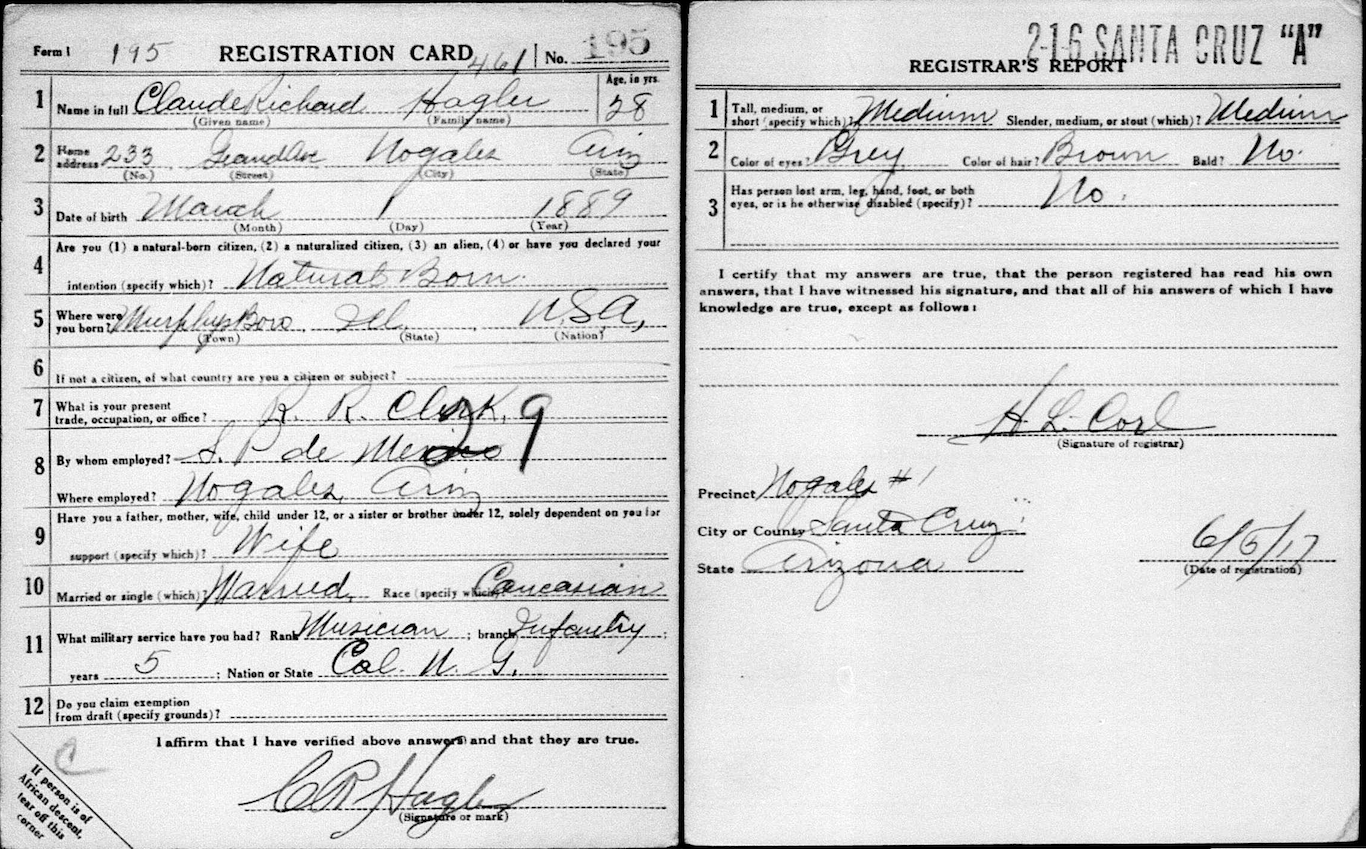 Form 1 195 REGISTRATION CARD 461 No. 195
1 Name in full Claude Richard Hagler Age, in yrs. 28
(Given name) (Family name)
2 Home address 233 Grand Ave Nogales Ariz
(No.) (Street) (City) (State)
3 Date of birth March 1 1889
(Month) (Day) (Year)
4 Are you (1) a natural-born citizen, (2) a naturalized citizen, (3) an alien, (4) or have you declared your
intention (specify which)? Natural Born.
5 Where were you born? MurphysBoro, Ill, U.S.A,
(Town) (State) (Nation)
6 If not a citizen, of what country are you a citizen or subject?
7 What is your present
trade, occupation, or office? R. R. Clerk,
29
8 By whom employed? S. P de Mexico
Where employed? Nogales, Ariz
9 Have you a father, mother, wife, child under 12, or a sister or brother under 12, solely dependent on you for
support (specify which)? Wife
10 Married or single (which)? Married, Race (specify which)? Caucasian
11 What military service have you had? Rank Musician ; branch Infantry ;
years 5 ; Nation or State Cal. N. G.
12 Do you claim exemption
from draft (specify grounds)?
I affirm that I have verified above answers and that they are true.
C
C R Hagler
(Signature or mark)
If person is of
African descent,
tear off this
corner
2-1-6 SANTA CRUZ "A"
REGISTRAR'S REPORT
1 Tall, medium, or
short (specify which)? Medium Slender, medium, or stout (which)? Medium
2 Color of eyes? Grey Color of hair? Brown Bald? No.
3 Has person lost arm, leg, hand, foot, or both
eyes, or is he otherwise disabled (specify)? No.
I certify that my answers are true, that the person registered has read his own
answers, that I have witnessed his signature, and that all of his answers of which I have
knowledge are true, except as follows:
H. L. Corl
(Signature of registrar)
Precinct Nogales #1
City or County Santa Cruz
State Arizona
6/5/17
(Date of registration)